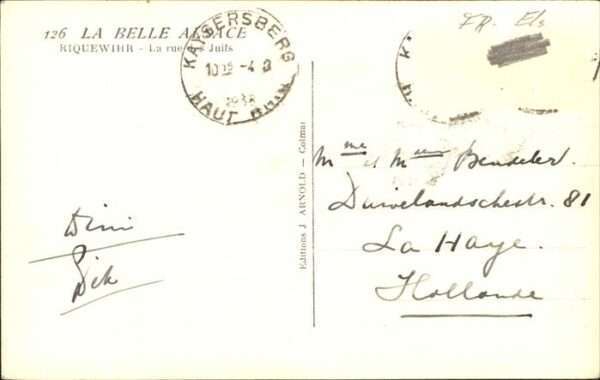 126 LA BELLE ALSACE
RIQUEWIHR - La rue des Juifs
KAYSERSBERG
1938
HAUT RHIN
FR. Els
Editions J ARNOLD — Colmar
Mme et Mr Bendeler.
Duivelandschestr. 81
La Haye.
Hollande
Dimi
Dick